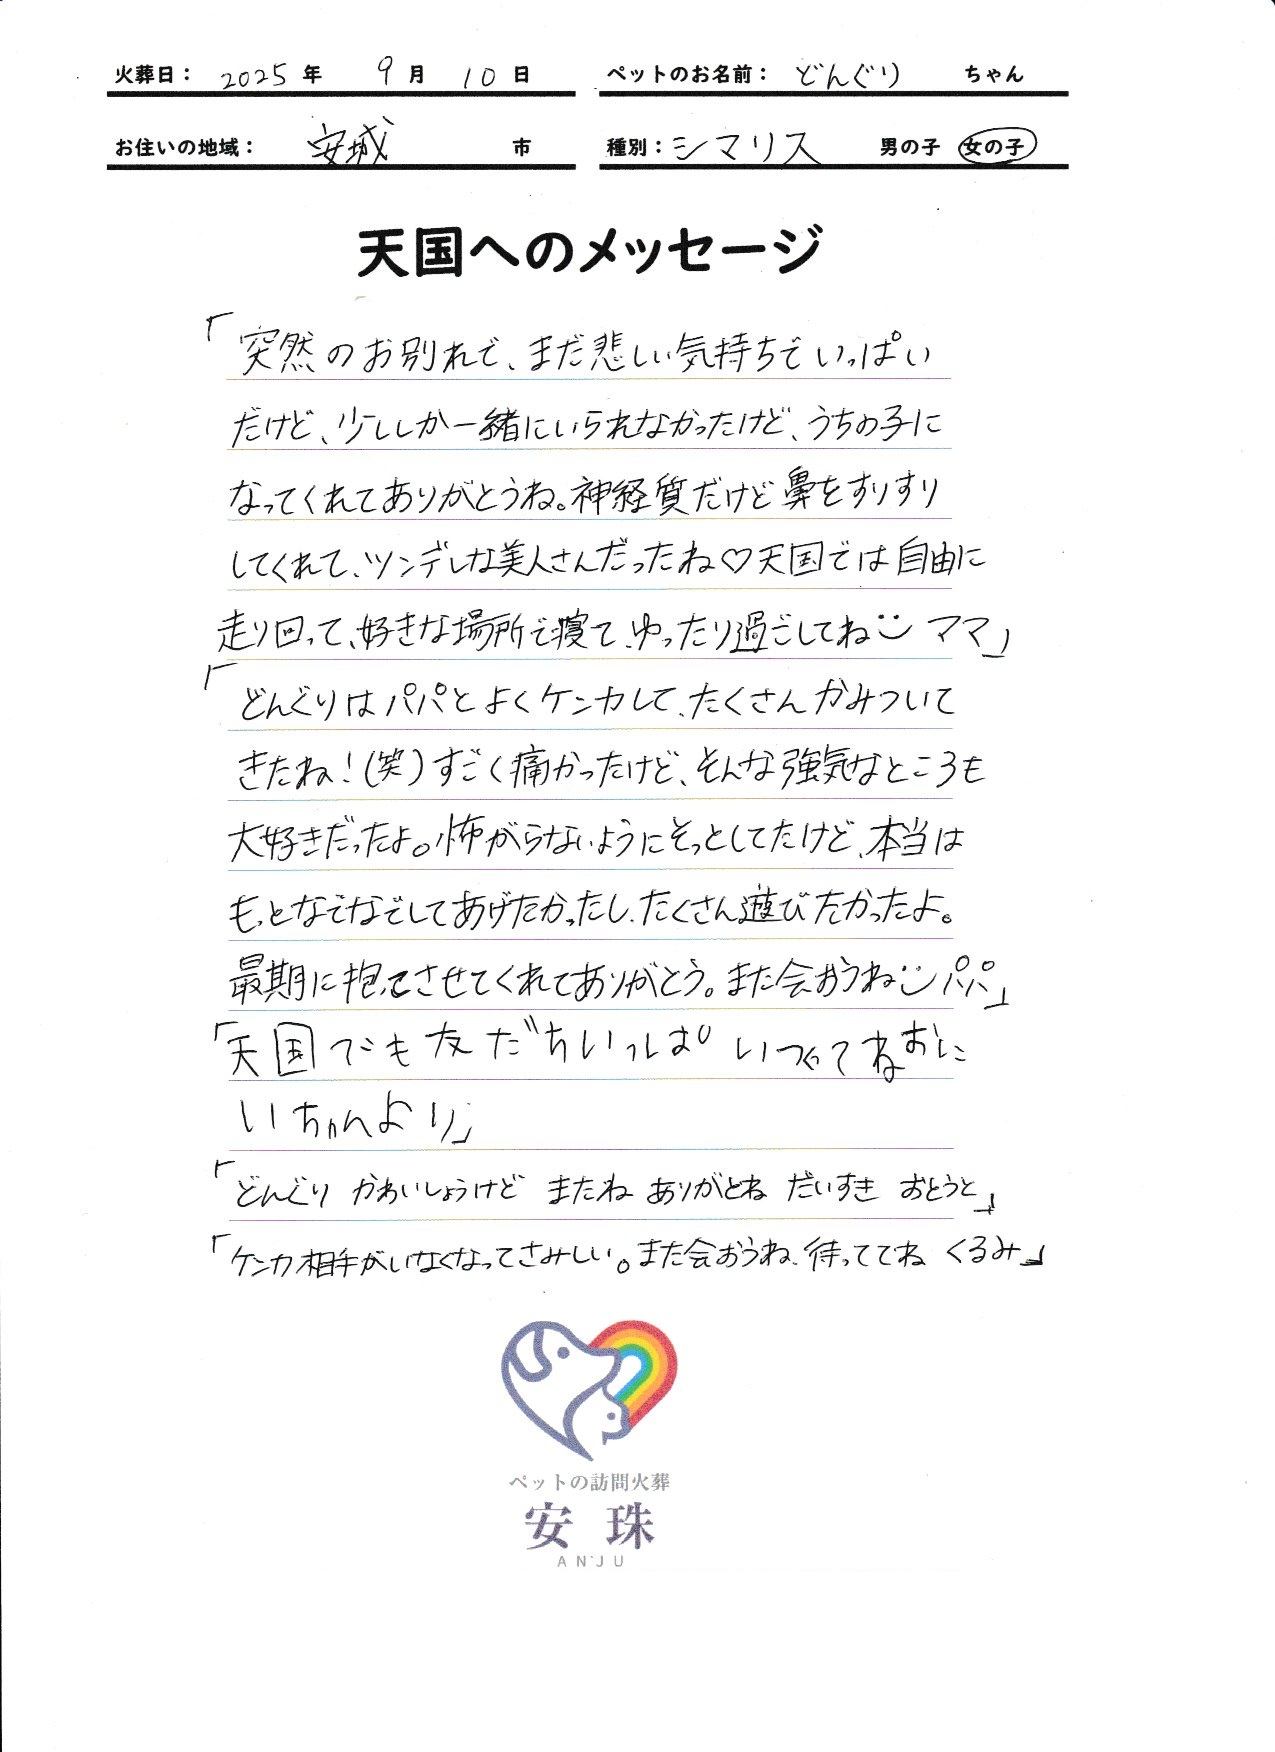 火葬日： 2025 年 9 月 10 日 ペットのお名前： どんぐり ちゃん
お住いの地域： 安城 市 種別： シマリス 男の子 女の子
天国へのメッセージ
「突然のお別れで、まだ悲しい気持ちでいっぱい
だけど、少ししか一緒にいられなかったけど、うちの子に
なってくれてありがとうね。神経質だけど鼻をすりすり
してくれて、ツンデレな美人さんだったね♡天国では自由に
走り回って、好きな場所で寝て、ゆったり過ごしてね ママ」
「どんぐりはパパとよくケンカして、たくさんかみついて
きたね！(笑)すごく痛かったけど、そんな強気なところも
大好きだったよ。怖がらないようにそっとしてたけど、本当は
もっとなでなでしてあげたかったし、たくさん遊びたかったよ。
最期に抱っこさせてくれてありがとう。また会おうね パパ」
「天国でも友だちいっぱいつくってねおに
いちゃんより」
「どんぐり かわいしょうけど またね ありがとね だいすき おとうと」
「ケンカ相手がいなくなってさみしい。また会おうね、待っててね くるみ」
ペットの訪問火葬
安珠
ANJU